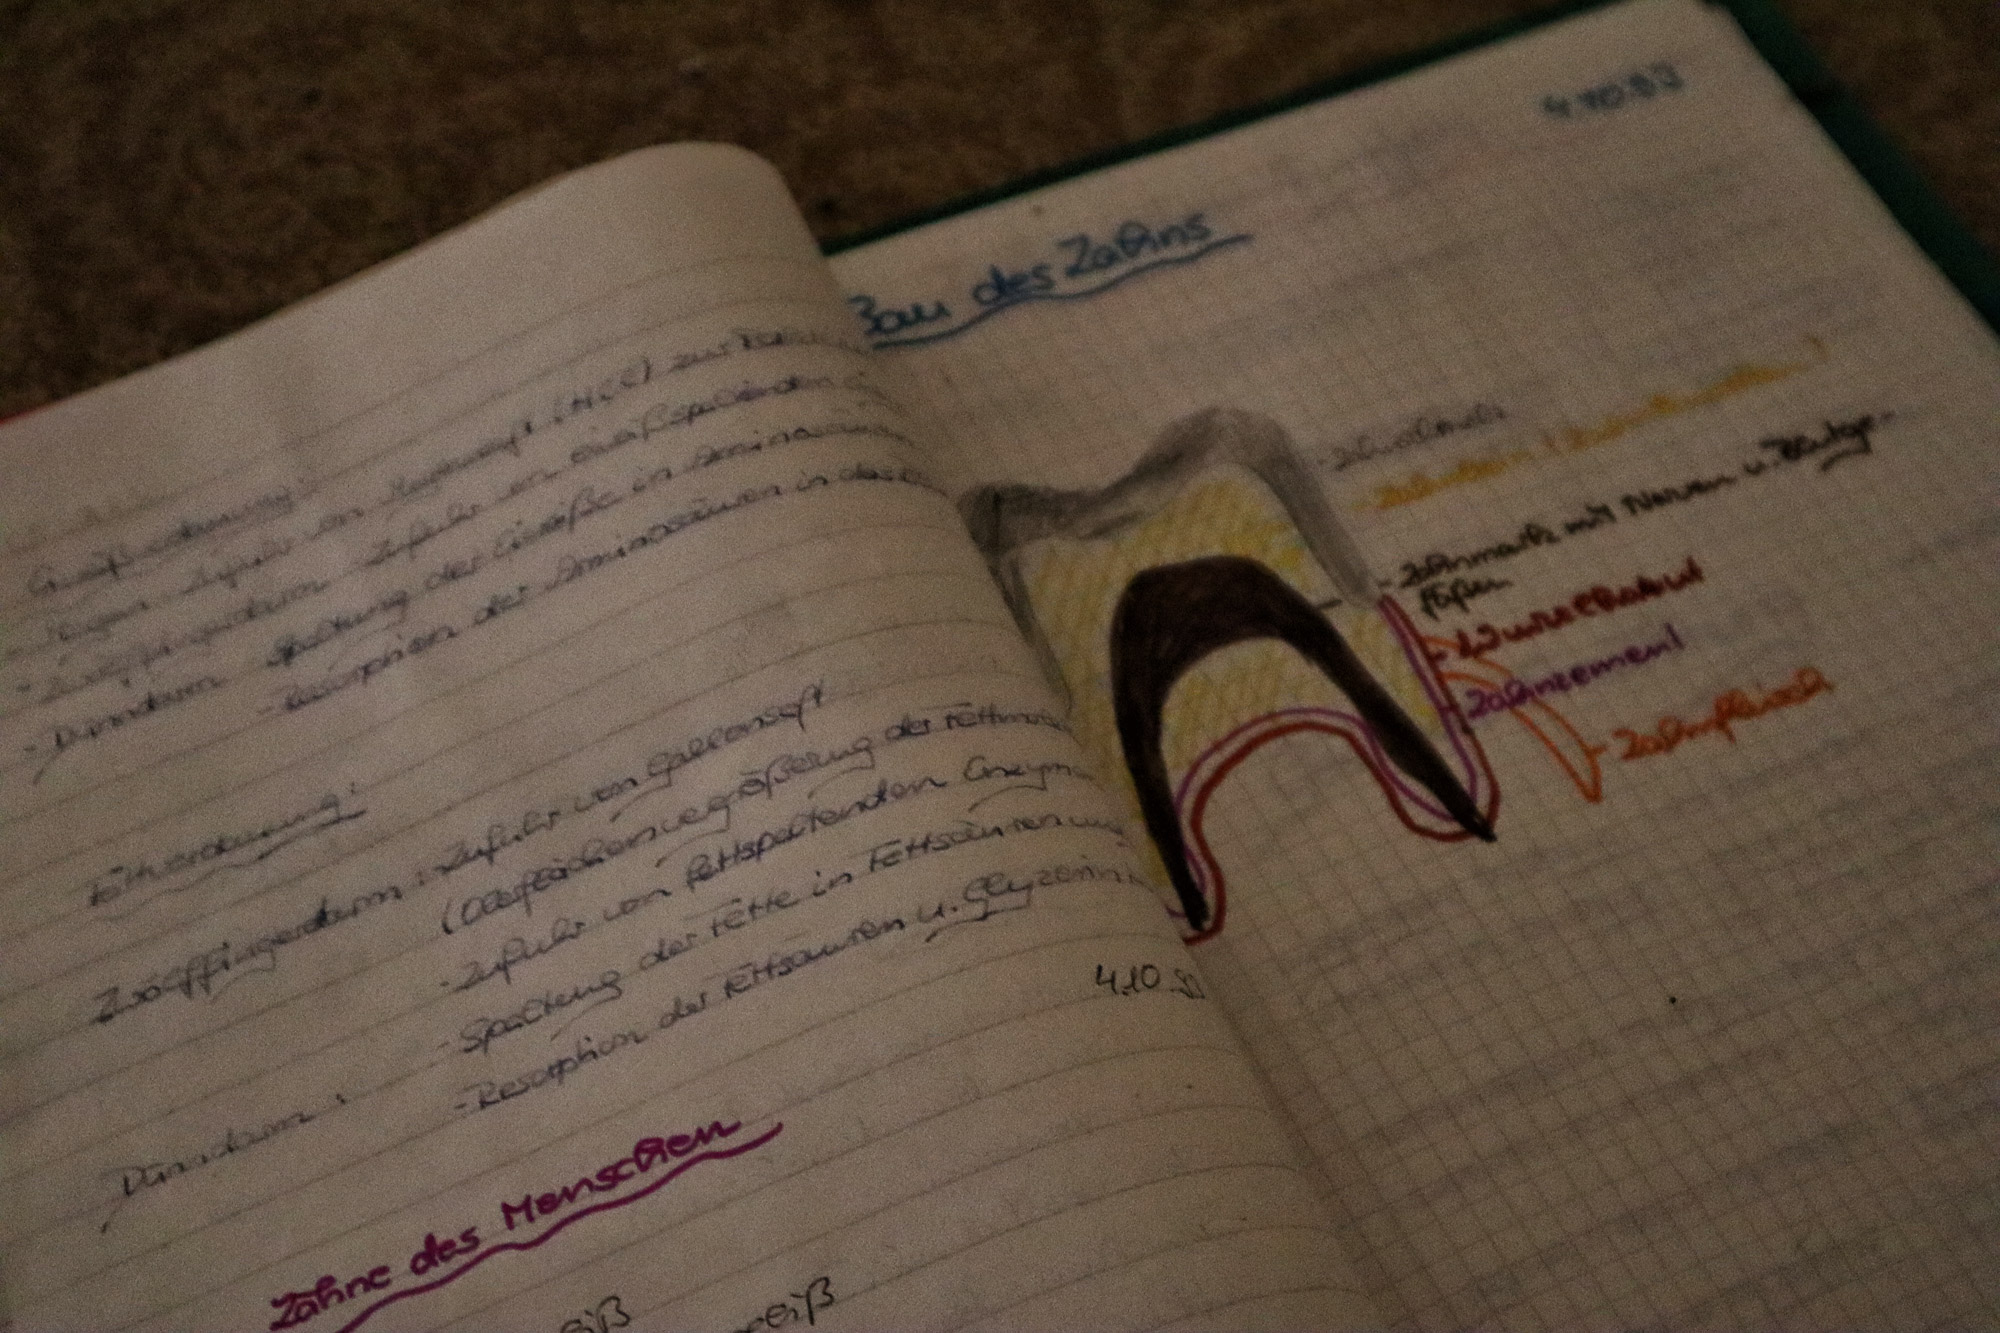 Eiweißverdauung:
Magen: Zufuhr von Magensaft (HCl) zur
- Zwölffingerdarm: Zufuhr von eiweißspaltenden
- Dünndarm: Spaltung der Eiweiße in Aminosäuren
- Resorption der Aminosäuren in das
Fettverdauung:
Zwölffingerdarm: Zufuhr von Gallensaft
(Oberflächenvergrößerung der Fettmo
- Zufuhr von fettspaltenden Enzym
Dünndarm: - Spaltung der Fette in Fettsäuren un
- Resorption der Fettsäuren u. Glyzerin
4.10.
Zähne des Menschen
eiß
eiß
4.10.93
Bau des Zahns
- Zahnschmelz
- Zahnbein
- Zahnmark mit Nerven u. Blutge-
fäßen
- Wurzelhaut
- Zahnzement
- Zahnfleisch